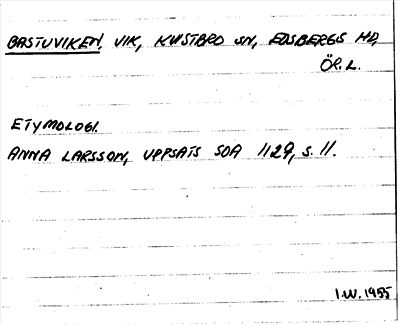 BASTUVIKEN, VIK, KVISTBRO SN, EDSBERGS HD,
ÖR. L.
ETYMOLOGI.
ANNA LARSSON, UPPSATS SOA 1129, S. 11.
I.W. 1955